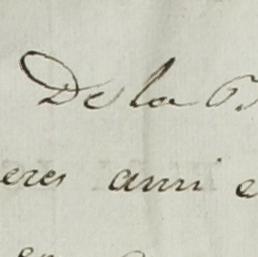 De la
eres ami e